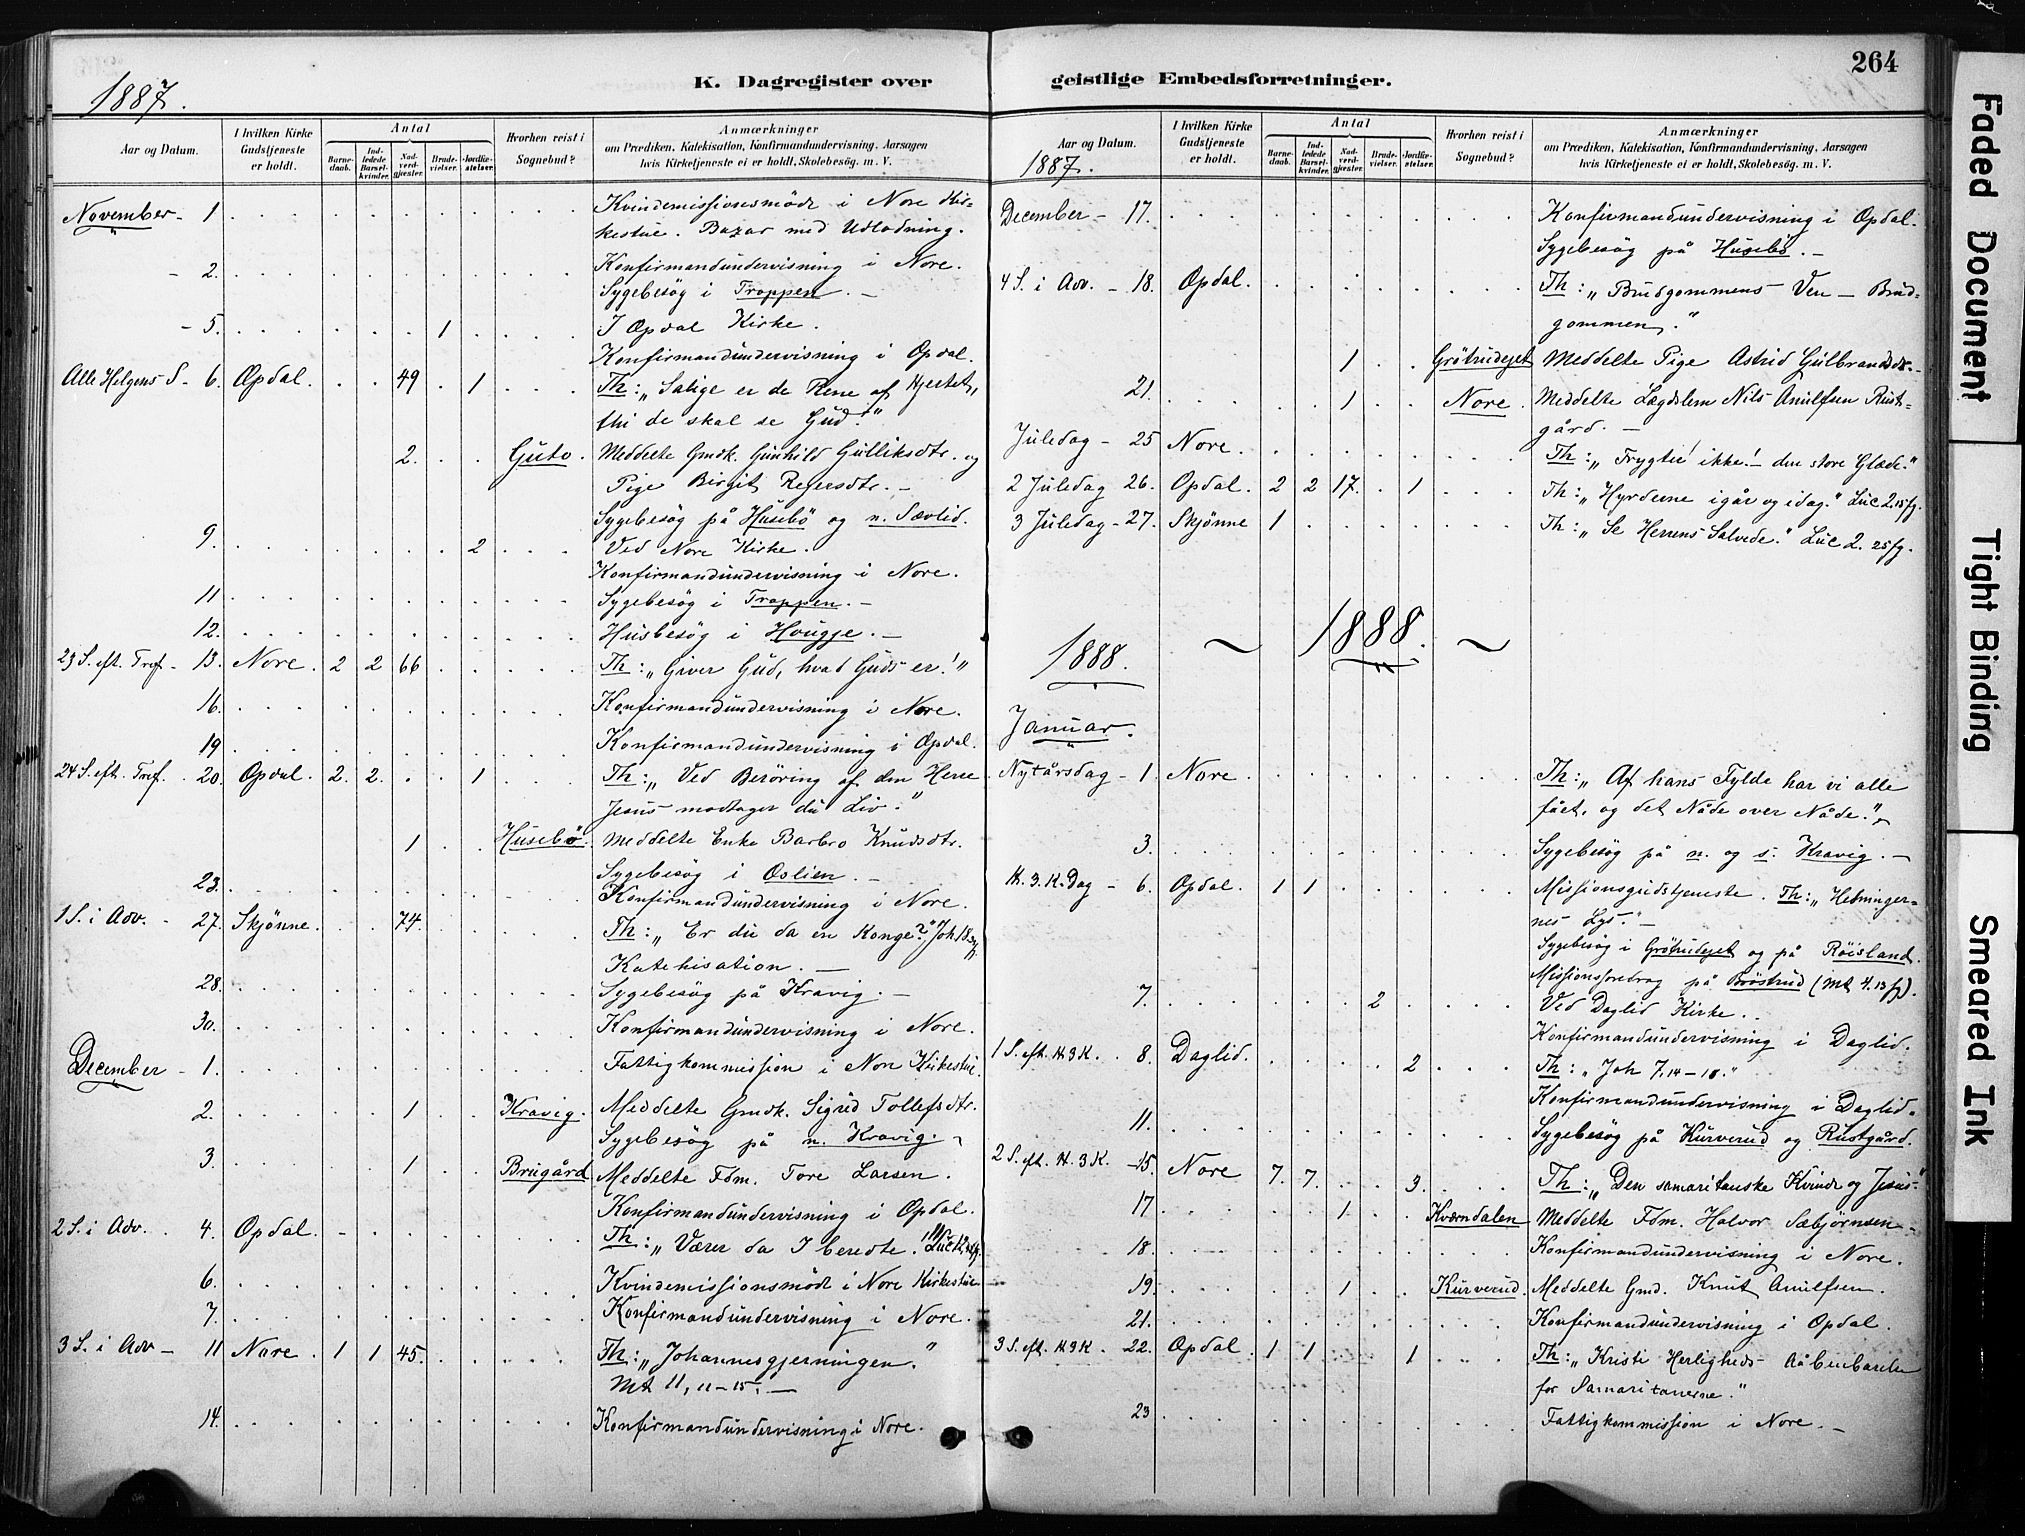 264
K. Dagregister over geistlige Embedsforretninger.
1887.
Aar og Datum.
I hvilken Kirke Gudstjeneste er holdt.
Antal
Barnedaab.
Indledede Barselkvinder.
Nadverdgjester.
Brudevielser.
Jordfæstelser.
Hvorhen reist i Sognebud?
Anmærkninger
om Prædiken, Katekisation, Konfirmandundervisning, Aarsagen
hvis Kirketjeneste ei er holdt, Skolebesøg. m. V.
November - 1 Kvindemissionsmöde i Nore Kir-
kestue. Bazar med Udlodning.
- 2. Konfirmandundervisning i Nore.
Sygebesög i Troppen. -
- 5. 1 I Opdal Kirke.
Konfirmandundervisning i Opdal.
Alle Helgens S - 6. Opdal. 49 1 Th: „Salige er de Rene af Hjertet,
thi de skal se Gud."
2. Guto. Meddelte Gmdk. Gunhild Gulliksdtr. og
Pige Birgit Reiersdtr. -
Sygebesög på Husebö og n. Sævlid.
9. 2 Ved Nore Kirke.
Konfirmandundervisning i Nore.
11 Sygebesög i Troppen. -
12. Husbesög i Hougje. -
23 S. eft. Tref. - 13. Nore. 2 2 66 Th: „Giver Gud, hvad Guds er!"
16. Konfirmandundervisning i Nore.
19 Konfirmandundervisning i Opdal.
24 S. eft. Tref. 20. Opdal. 2. 2. 1 Th: „Ved Beröring af den Herre
Jesus modtager du Liv."
1 Husebö. Meddelte Enke Barbro Knudsdtr.
Sygebesög i Oslien. -
23. Konfirmandundervisning i Nore.
1 S. i Adv. - 27. Skjønne. 74. Th: „Er du da en Konge?" Joh 18
Katehisation. -
28. Sygebesög på Kravig. -
30. Konfirmandundervisning i Nore.
December - 1. Fattigkommission i Nore Kirkestue.
2. 1 Kravig. Meddelte Gmdk. Sigrid Tollefsdtr.
Sygebesög på n. Kravig. -
3. 1 Brugård Meddelte Fdm. Tore Larsen.
Konfirmandundervisning i Opdal.
2 S. i Adv. 4. Opdal. Th: „Værer da I beredte!" Luc 12
6. Kvindemissionsmöde i Nore Kirkestue
7. Konfirmandundervisning i Nore.
3 S. i Adv - 11 Nore. 1 1 45. Th: „Johannesgjerningen."
Mt 11, 11-15. -
14. Konfirmandundervisning i Nore.
Aar og Datum.
1887.
I hvilken Kirke Gudstjeneste er holdt.
Antal
Barnedaab.
Indledede Barselkvinder.
Nadverdgjester.
Brudevielser.
Jordfæstelser.
Hvorhen reist i Sognebud?
Anmærkninger
om Prædiken, Katekisation, Konfirmandundervisning, Aarsagen
hvis Kirketjeneste ei er holdt, Skolebesøg. m. V.
December - 17. Konfirmandundervisning i Opdal.
Sygebesög på Husebö. -
4 S. i Adv. - 18. Opdal. Th: „Brudgommens Ven - Brud-
gommen."
1 Grötrudejet Meddelte Pige Astrid Gulbrandsdtr. -
21. 1 Nore. Meddelte Lægdslem Nils Amulfsen Rust-
gård. -
Juledag - 25 Nore. Th: „Frygter ikke! - den store Glæde."
2 Juledag 26. Opdal. 2 2 17. 1 Th: „Hyrderne igår og idag." Luc 2. 15 fg.
3 Juledag - 27. Skjønne 1 Th: „Se Herrens Salvede." Luc 2. 25 fg.
1888. ~ 1888. ~
Januar.
Nytårsdag - 1 Nore. Th: „Af hans Fylde har vi alle
fået, og det Nåde over Nåde."
3. Sygebesög på n. og s. Kravig. -
H. 3. K. Dag - 6. Opdal. 1 1 Missionsgudstjeneste. Th: „Hedninger-
nes Lys." -
Sygebesög i Grötrudejet og på Röisland.
Missionsforedrag på Bröstrud (Mt 4. 13 fg).
7. 2 Ved Daglid Kirke.
Konfirmandundervisning i Daglid.
1 S. eft. H3K. 8. Daglid. 2 Th: „Joh 7. 14-18."
Konfirmandundervisning i Daglid.
11. Sygebesög på Kurverud og Rustgård.
2 S. eft. H. 3 K. - 15. Nore 7. 7. 3. Th: „Den samaritanske Kvinde og Jesus."
17 1 Kværndalen Meddelte Fdm. Halvor Sæbjørnsen -
18. Konfirmandundervisning i Nore.
19. 1 Kurverud. Meddelte Gmd. Knut Amulfsen.
21. Konfirmandundervisning i Opdal.
3 S. eft. H3K. 22. Opdal. 1 1 1 Th: „Kristi Herligheds Åbenbarelse
for Samaritanerne."
23 Fattigkommission i Nore. -
Faded Document
Tight Binding
Smeared Ink